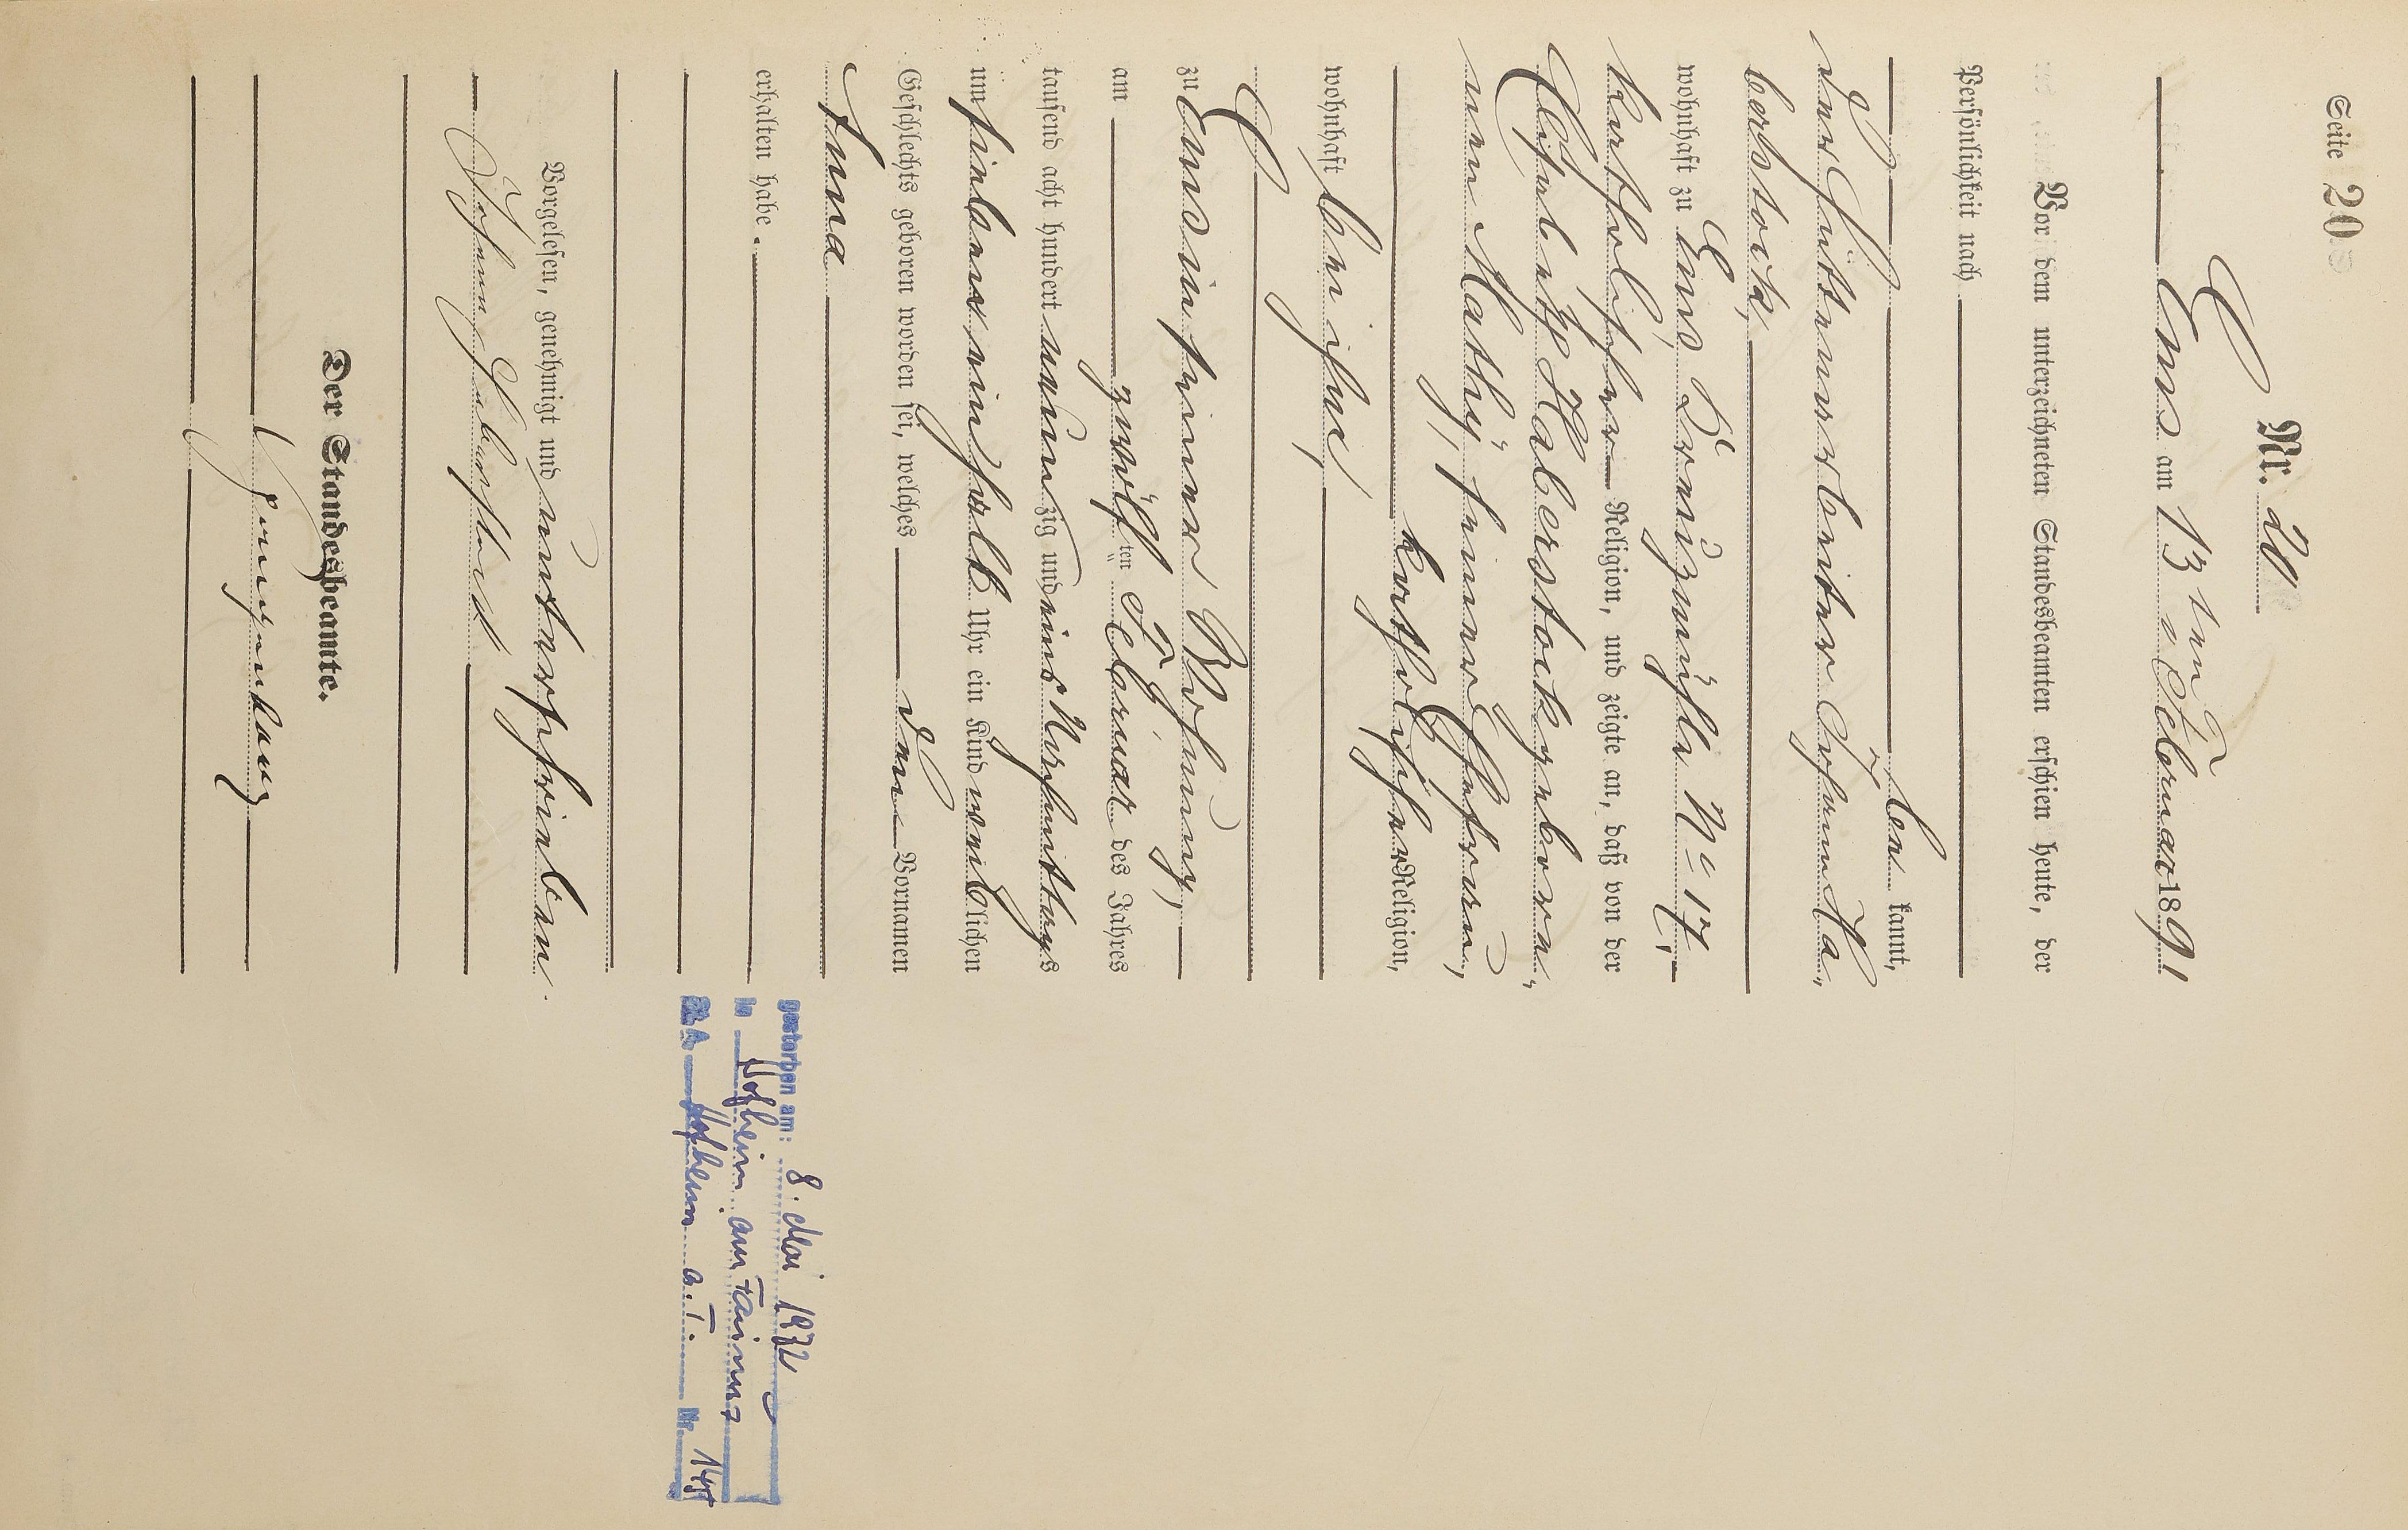 Seite 20
Nr. 20
Ems am 13ten Februar 1891
Vor dem unterzeichneten Standesbeamten erschien heute, der
Persönlichkeit nach
be kannt,
der Hüttenarbeiter Johann Ha-
berstock,
wohnhaft zu Ems Kreuzmühle No 17,
katholischer Religion, und zeigte an, daß von der
Elisabeth Haberstock gebore-
nen Mathy, seiner Ehefrau,
katholischer Religion,
wohnhaft bei ihm,
zu Ems in seiner Wohnung,
am zwölf ten Februar des Jahres
tausend acht hundert neun zig und eins Nachmittags
um sieben einhalb Uhr ein Kind weib lichen
Geschlechts geboren worden sei, welches den Vornamen
Anna
erhalten habe.
Vorgelesen, genehmigt und unterschrieben.
Johann Haberstock
Der Standesbeamte.
gestorben am: 8. Mai 1972
in Hofheim am Taunus
StA Hofheim a. T. Nr.